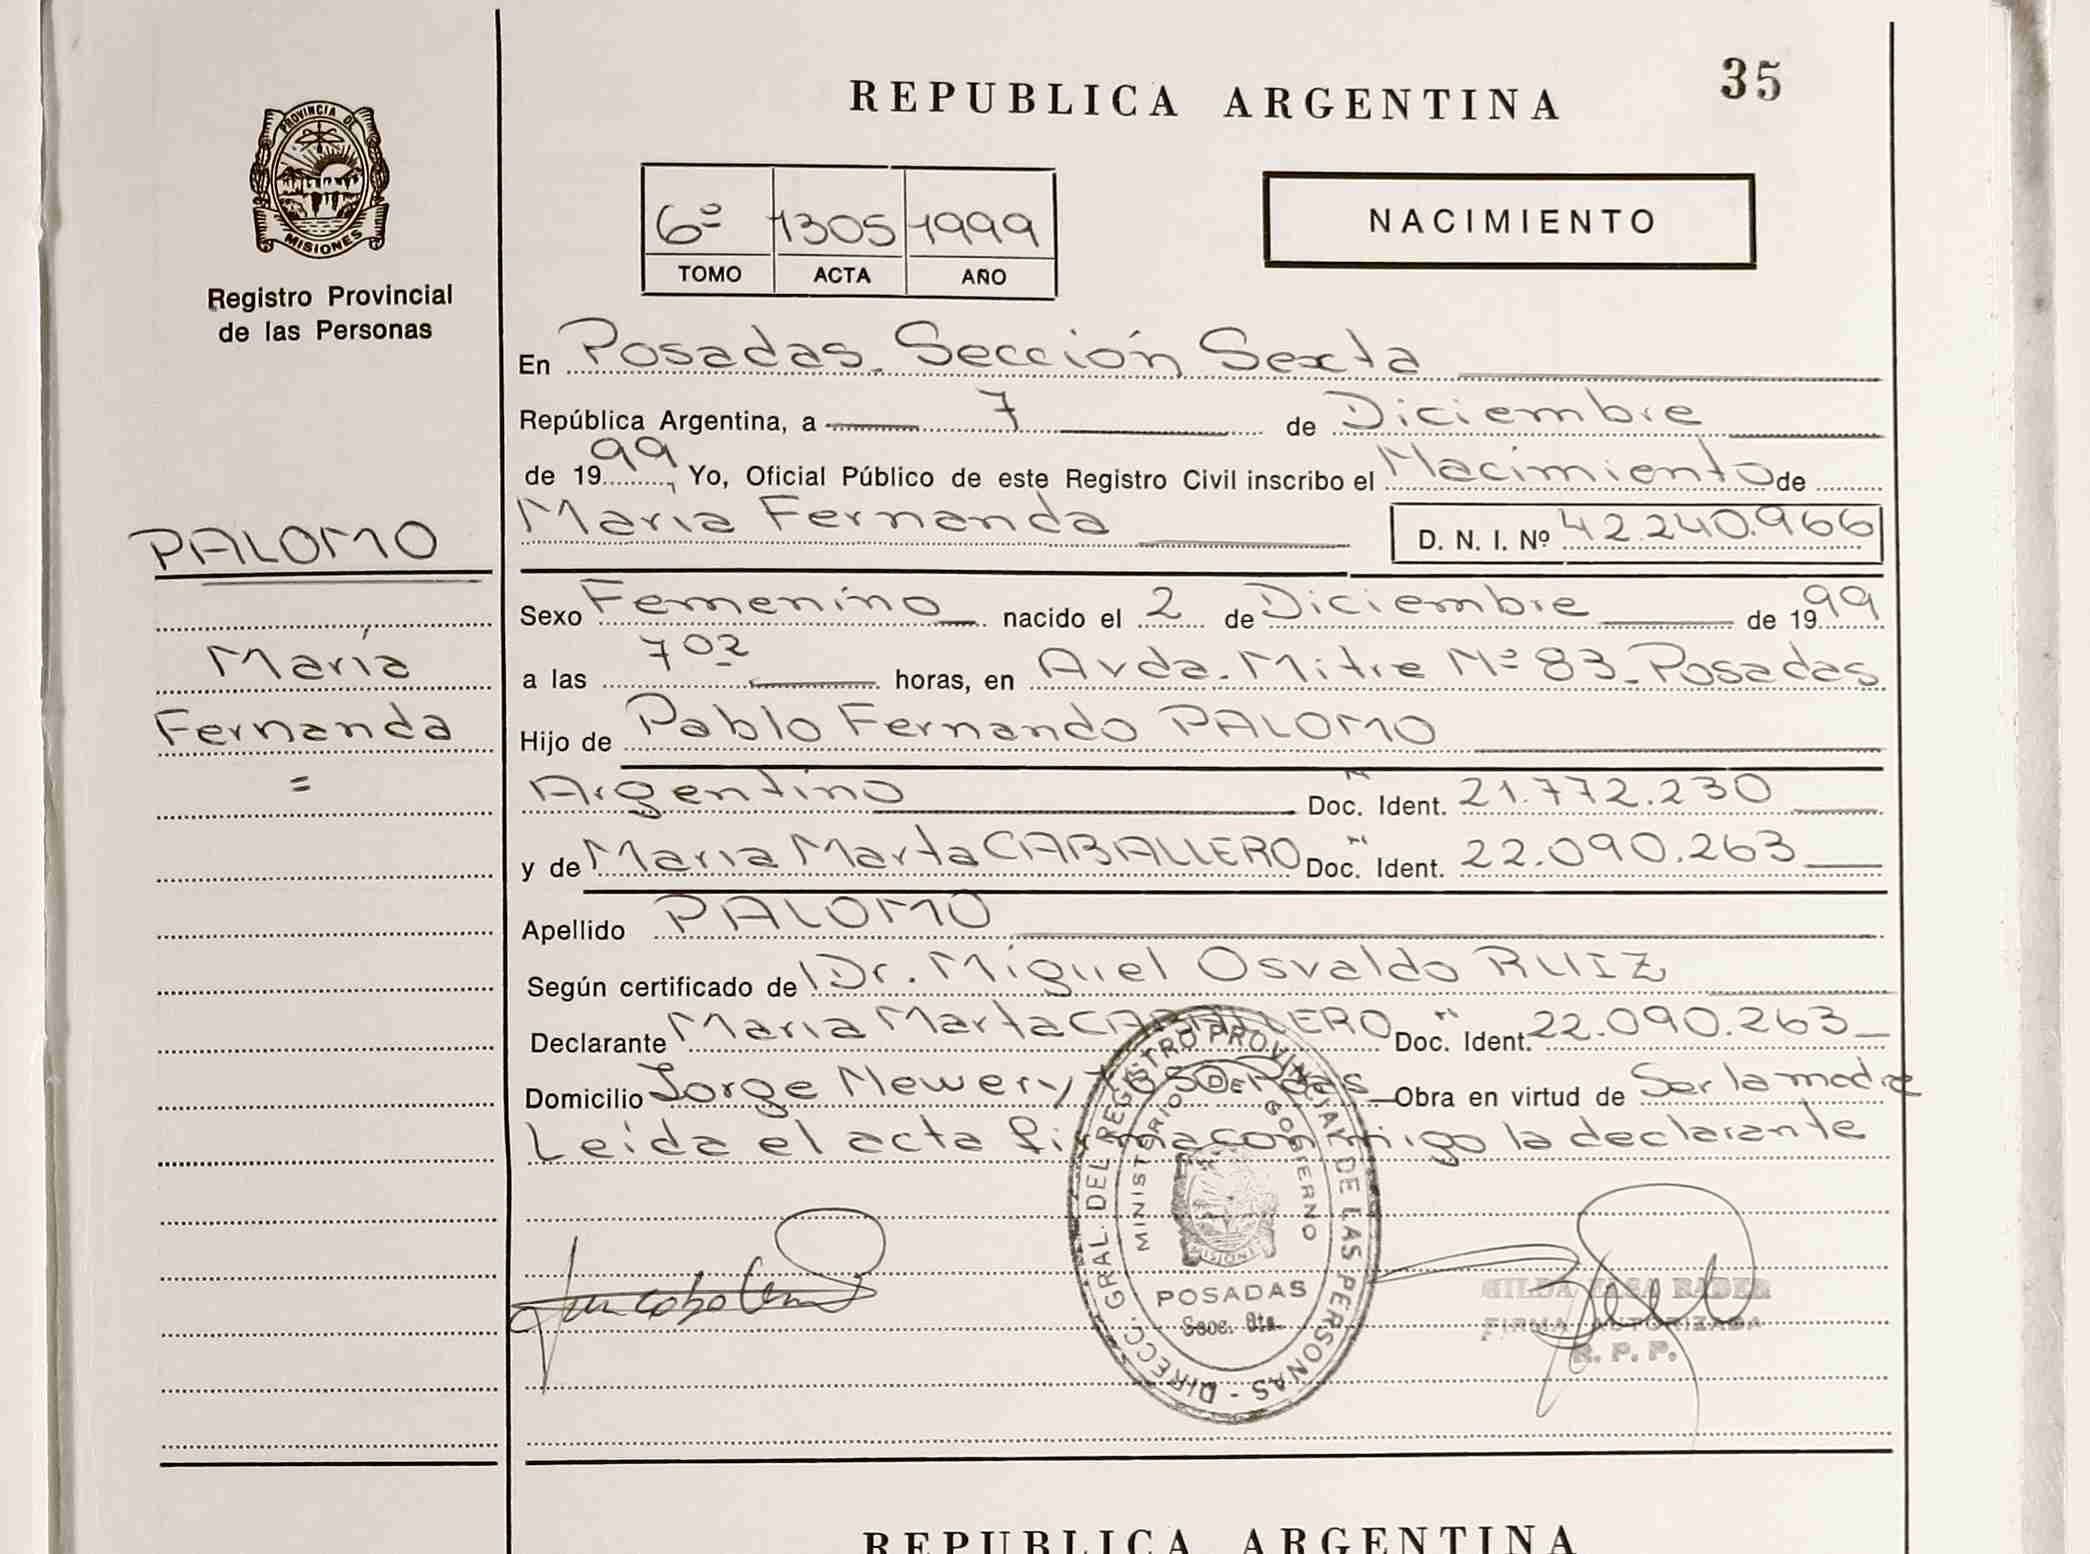 REPUBLICA ARGENTINA
35
PROVINCIA DE
MISIONES
Registro Provincial
de las Personas
6º 1305 1999
TOMO ACTA AÑO
NACIMIENTO
En Posadas. Sección Sexta
República Argentina, a 7 de Diciembre
de 1999, Yo, Oficial Público de este Registro Civil inscribo el Nacimiento de
María Fernanda D. N. I. Nº 42.240.966
PALOMO
María
Fernanda
=
Sexo Femenino nacido el 2 de Diciembre de 1999
a las 702 horas, en Avda. Mitre Nº 83_Posadas
Hijo de Pablo Fernando PALOMO
Argentino Doc. Ident. 21.772.230
y de María Marta CABALLERO Doc. Ident. 22.090.263
Apellido PALOMO
Según certificado de Dr. Miguel Osvaldo RUIZ
Declarante María Marta CABALLERO Doc. Ident. 22.090.263
Domicilio Jorge Newery Obra en virtud de Ser la madre
Leída el acta firma conmigo la declarante
DIRECC. GRAL. DEL REGISTRO PROVINCIAL DE LAS PERSONAS -
MINISTERIO DE GOBIERNO
MISIONES
POSADAS
Secc. 6ta.
HILDA ELSA BADER
FIRMA AUTORIZADA
R. P. P.
REPUBLICA ARGENTINA